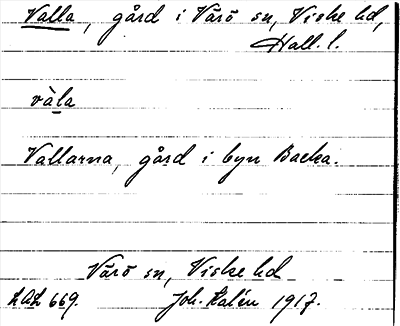 Valla, gård i Värö sn, Viske hd,
Hall. l.
väla
Vallarna, gård i byn Backa.
Värö sn, Viske hd
LAL 669. Joh. Kalén 1917.